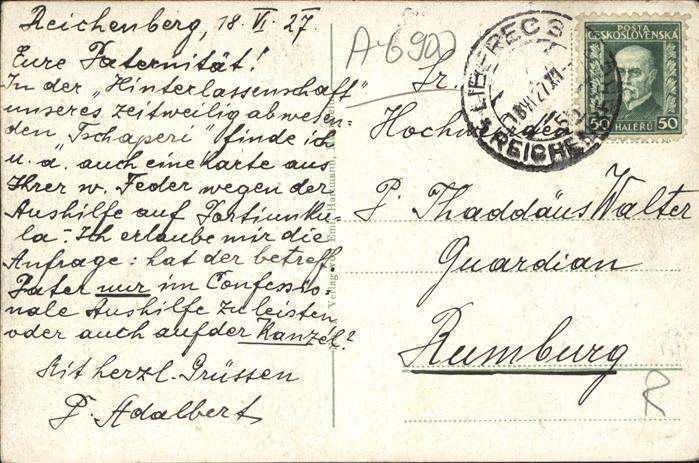 Reichenberg, 18. VI. 27.
Eure Paternität!
In der "Hinterlassenschaft"
unseres zeitweilig abwesen-
den "Tschaperi" finde ich
u. a. auch eine Karte aus
Ihrer w. Feder wegen der
Aushilfe auf Portiunku-
la. Ich erlaube mir die
Anfrage: hat der betreff.
Pater nur im Confessio-
nale Aushilfe zu leisten
oder auch auf der Kanzel?
Mit herzl. Grüssen
P. Adalbert
A 6900
Sr.
Hochwürden
P. Thaddäus Walter
Guardian
Rumburg
POSTA
ČESKOSLOVENSKÁ
50 HALÉŘŮ 50
LIBEREC
REICHEN
Verlag von